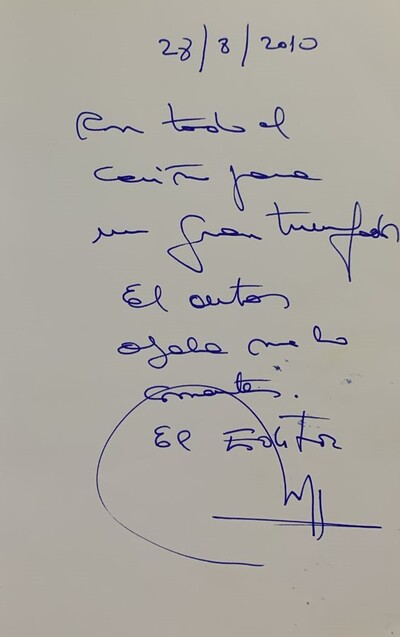 28/8/2010
Con todo el
cariño para
un gran triunfador
El autor
ojala me lo
comentes.
El Editor